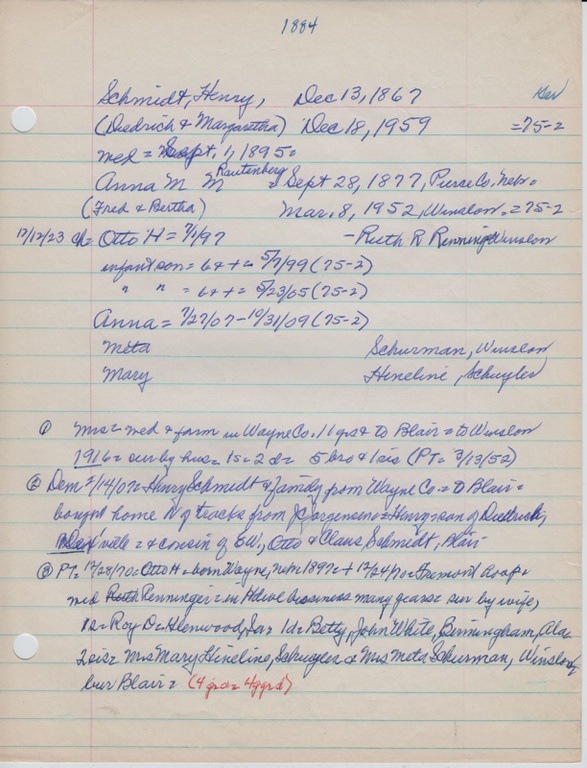 1884
Schmidt, Henry, Dec 13, 1867
(Diedrich & Margaretha) Dec 18, 1959 = 75-2
med = Sept. 1, 1895.
Anna M Rautenberg = Sept 28, 1877, Pierce Co. Nebr.
(Fred & Bertha) Mar. 8, 1952, Winslow = 75-2
12/12/23 ch = Otto H = 7/1/97 - Ruth R Renninger Winslow
infant son = b & + = 5/7/99 (75-2)
" " = b & + = 5/23/05 (75-2)
Anna = 7/27/07 - 10/31/09 (75-2)
Meta Schurman, Winslow
Mary Hineline, Schuyler
① Mrs = med & farm in Wayne Co. 11 yrs & to Blair = to Winslow
1916 = sur by hus = 1s = 2d = 5 bro & 1 sis (PT = 3/13/52)
② Dem = 2/14/07 = Henry Schmidt & family from Wayne Co = to Blair =
bought home N of tracks from J Jorgensen = Henry = son of Diedrich,
= & cousin of EW., Otto & Claus Schmidt, Blair
③ PT = 12/28/70 = Otto H = born Wayne, 1897 = + 12/24/70 = Fremont hosp =
med Ruth Renninger = in business many years = sur by wife,
1s = Roy D = Glenwood, Ia = 1d = Betty, John White, Birmingham, Ala
2 sis = Mrs Mary Hineline, Schuyler & Mrs Meta Schurman, Winslow
bur Blair = (4 grd = 4 ggrd)